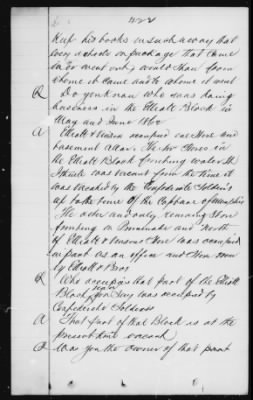 422
Keep his books in such a way that
every article or package that came
in or went out, would show from
whome it came and to whome it went
Q Do you know who was doing
business in the Elliott Block in
May and June 1862
A Elliott & Vinson occupied one Store and
basement
The Store in
the Elliott Block fronting water St
was vacant from the time it
was vacated by the Confederate Soldiers
up to the time of the Capture of Memphis
The other and only remaining Store
fronting on and North
of Elliott & Vinsons Store was occupied
in part as an office and Store room
by Elliott & Bros
Q Who occupies that part of the Elliott
Block you say was occupied by
Confederate Soldiers
A That part of that Block is at the
present time vacant
Q Was you the owner of that part